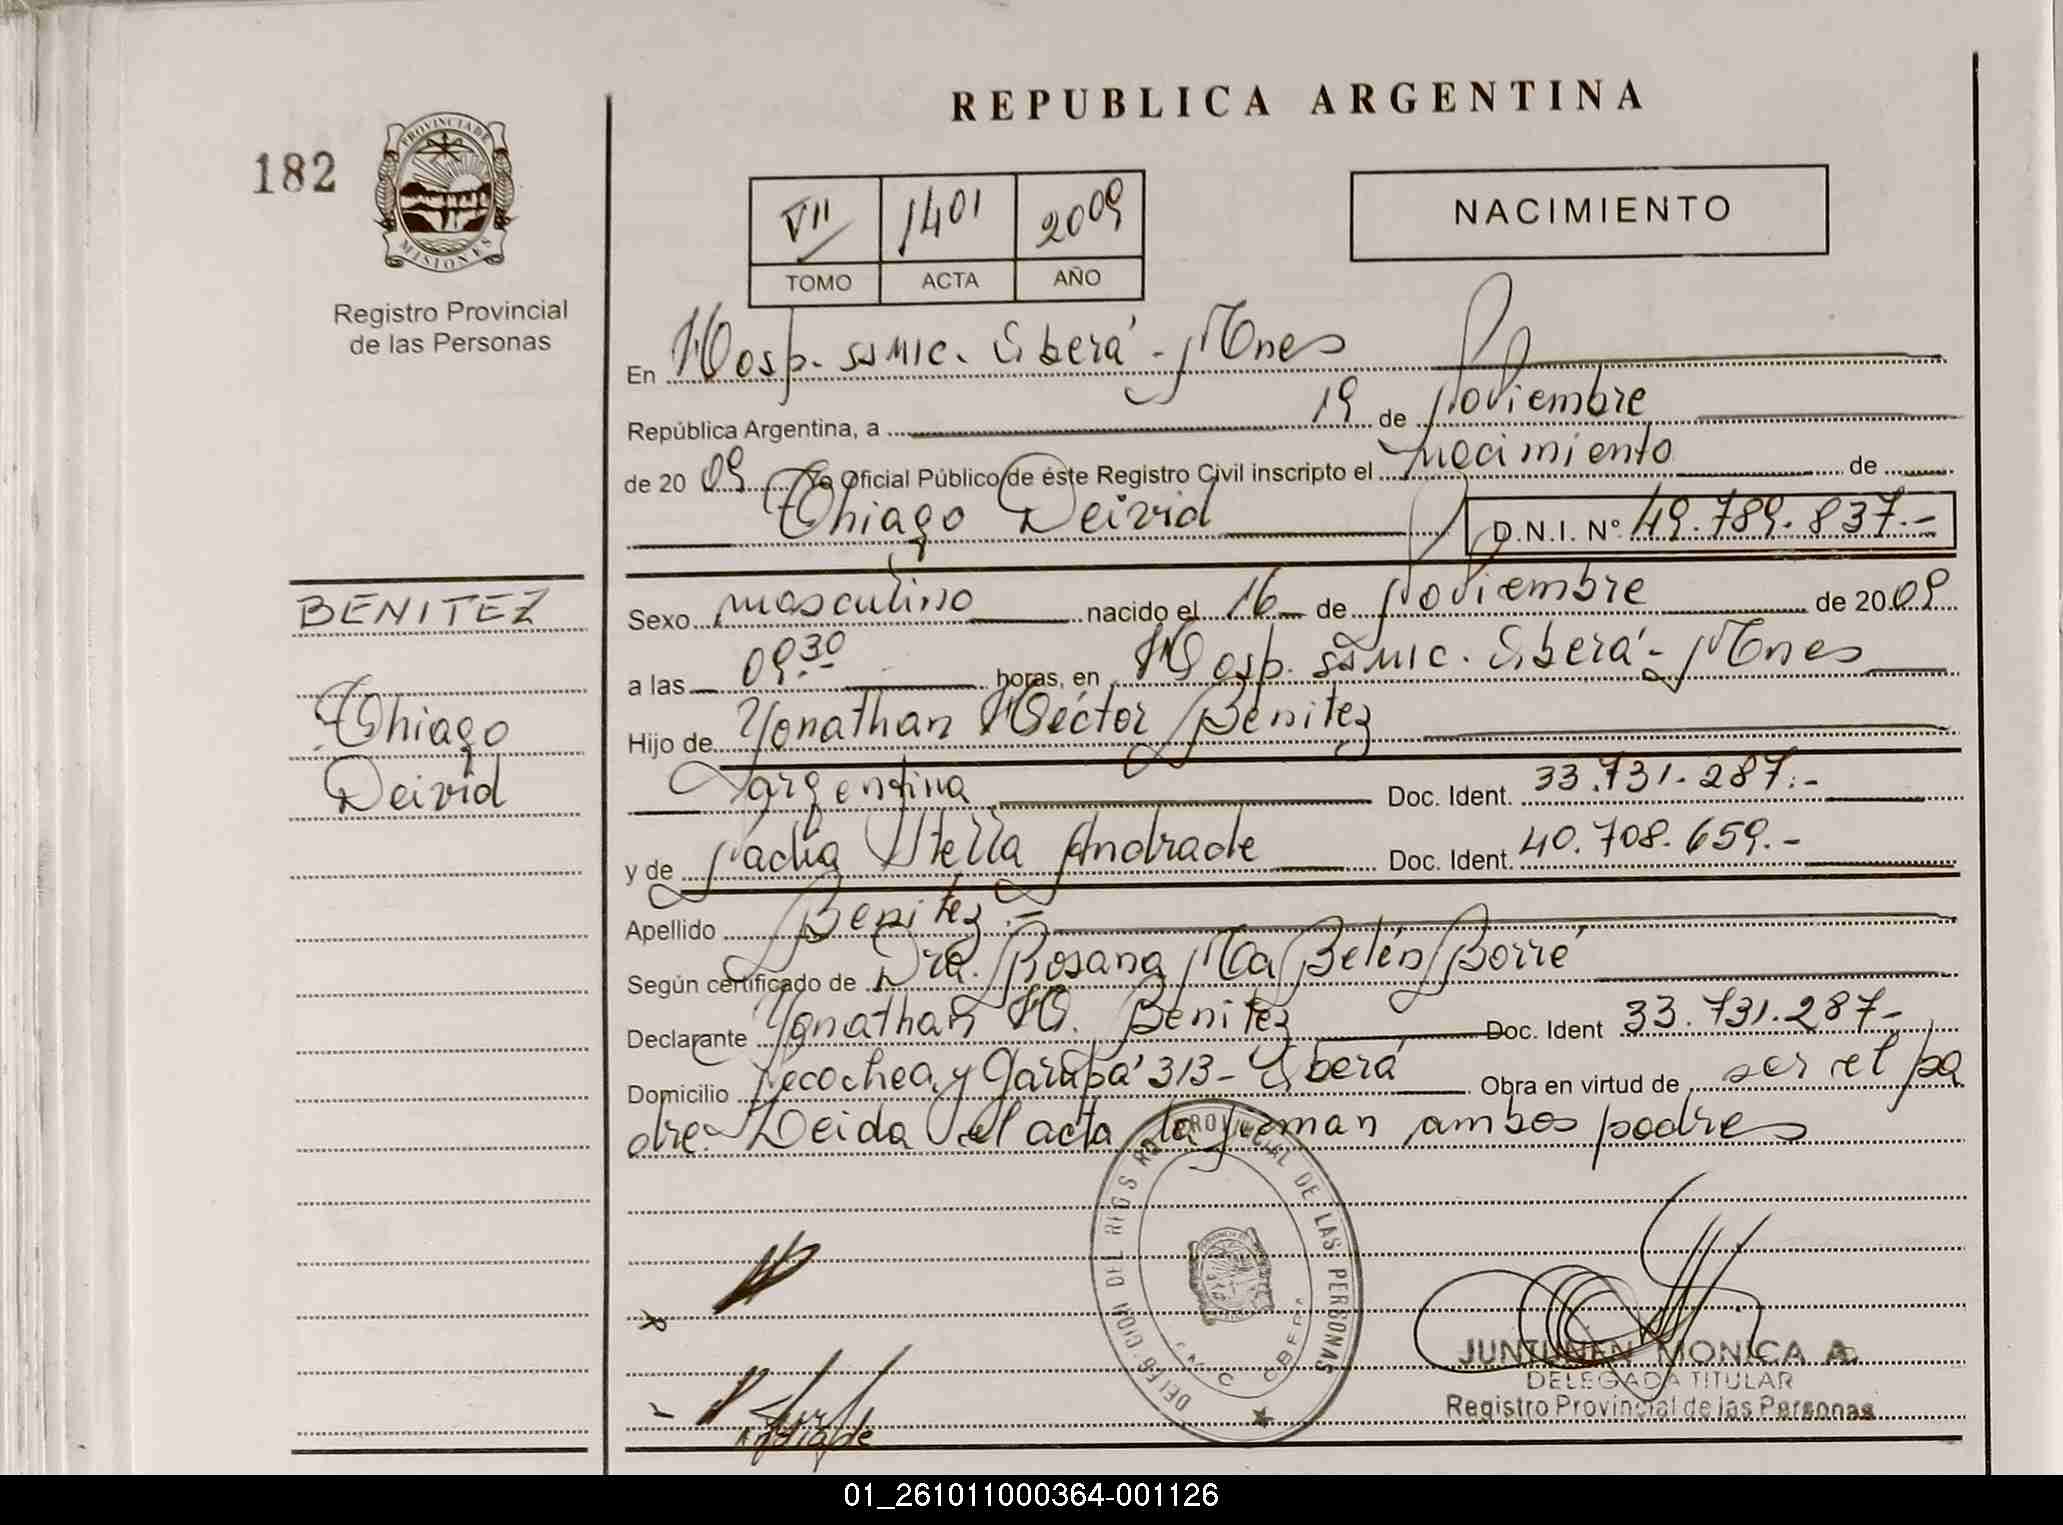 REPUBLICA ARGENTINA
182
PROVINCIA DE
MISIONES
Registro Provincial
de las Personas
VII 1401 2009
TOMO ACTA AÑO
NACIMIENTO
En Hosp. SSMIC. Oberá - Mnes
República Argentina, a 19 de Noviembre
de 2009 Yo Oficial Público de éste Registro Civil inscripto el nacimiento de
Thiago Deivid D.N.I. Nº 49.789.837.-
BENITEZ
Thiago
Deivid
Sexo masculino nacido el 16 de Noviembre de 2009
a las 09.30 horas, en Hosp. SSMIC. Oberá - Mnes
Hijo de Yonathan Héctor Benitez
argentina Doc. Ident. 33.731.287.-
y de Stella Andrade Doc. Ident. 40.708.659.-
Apellido Benitez.-
Según certificado de Dra. Rosana Ma Belén Borré
Declarante Yonathan H. Benitez Doc. Ident 33.731.287-
Domicilio Necochea y Garupá 313 - Oberá Obra en virtud de ser el pa
dre. Leida el acta la firman ambos padres
DELEGACION DEL REGISTRO PROVINCIAL DE LAS PERSONAS
OBERA
Andrade
JUNTUNEN MONICA A.
DELEGADA TITULAR
Registro Provincial de las Personas
01_261011000364-001126